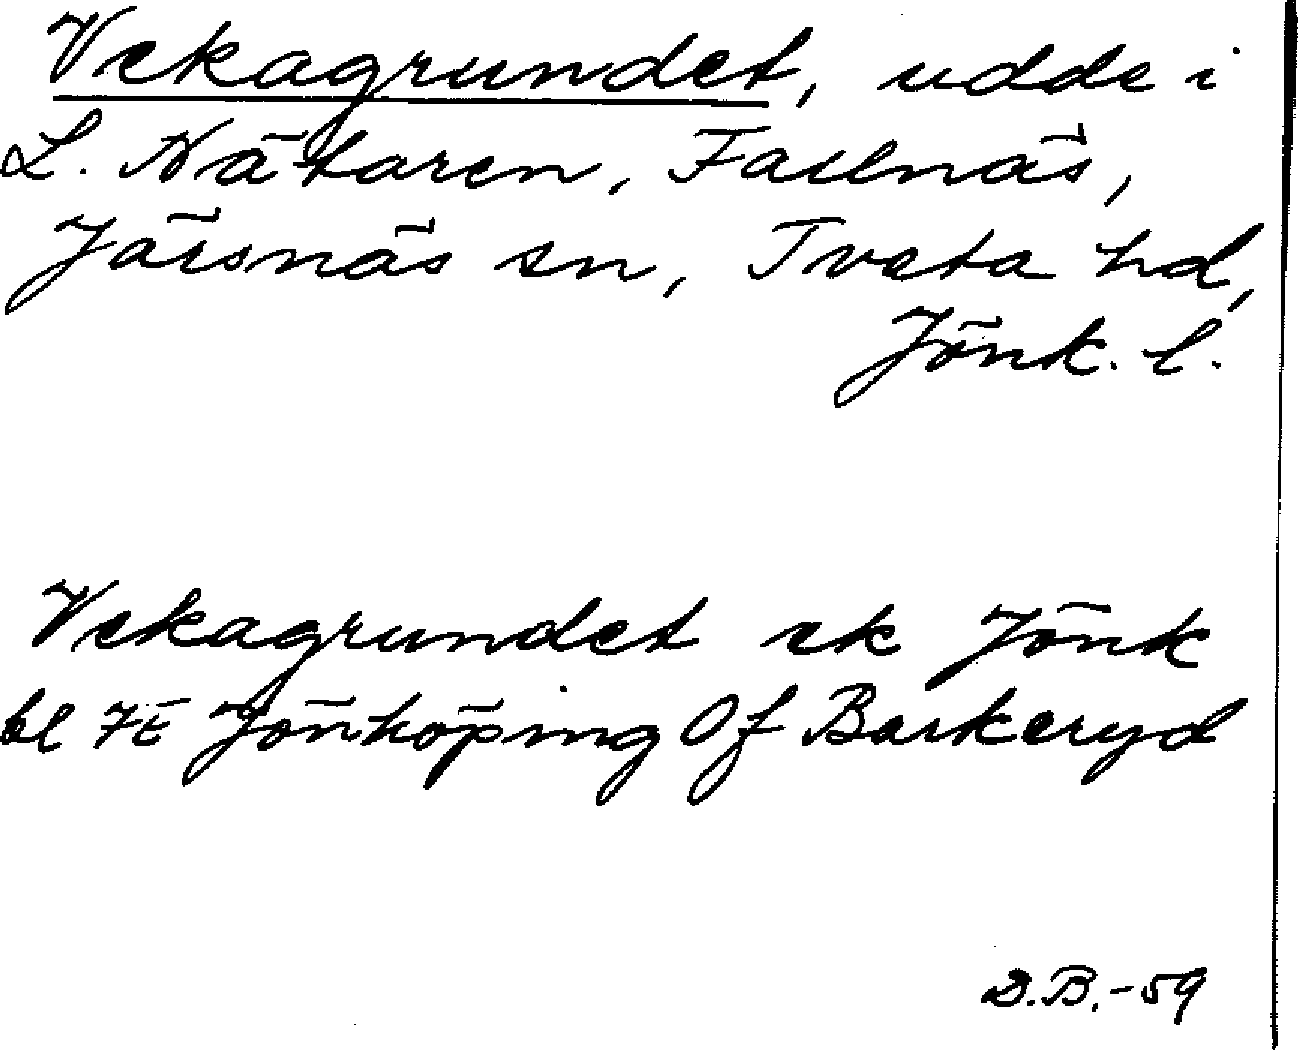 Vekagrundet, udde i
L. Nätaren, Fallnäs,
Järsnäs sn, Tveta hd,
Jönk. l.
Vekagrundet ek Jönk
bl 7E Jönköping Of Barkeryd
D.B.-59